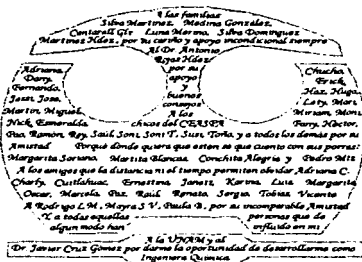 A las familias
Silva Martinez, Medina González,
Centarall Glz Luna Merino, Silva Dominguez
Martinez Hdez, por su cariño y apoyo incondicional siempre
Al Dr Antonio
Rojas Hdez
por su
apoyo
y
buenos
consejos
Adriana,
Dary,
Fernando,
Jossi, Jose,
Martin, Miguel,
Nick, Esmeralda,
Chucha,
Erick,
Haz, Hugo,
Laty, Mari,
Miriam, Moni,
Pary, Héctor,
A los
chicos del CEASPA
Pao, Ramón, Rey, Saúl, Soni, Soni T., Susi, Toña, y a todos los demás por su
Amistad Porqué dónde quiera que esten sé que cuento con sus porras:
Margarita Soriano, Martita Blancas, Conchita Alegria y Pedro Mtz
A los amigos que la distancia ni el tiempo permiten olvidar Adriana C.
Charly, Cuitlahuac, Ernestina, Janett, Karina, Luis, Margarita
Oscar, Marcela, Paz, Raúl, Renato, Sergio, Tobias, Vicente
A Rodrigo L.M., Mayra S.V., Paula B., por su incomparable Amistad
Y a todas aquellas personas que de
algun modo han influido en mi
A la UNAM y al
Dr. Javier Cruz Gómez por darme la oportunidad de desarrollarme como
Ingeniera Química